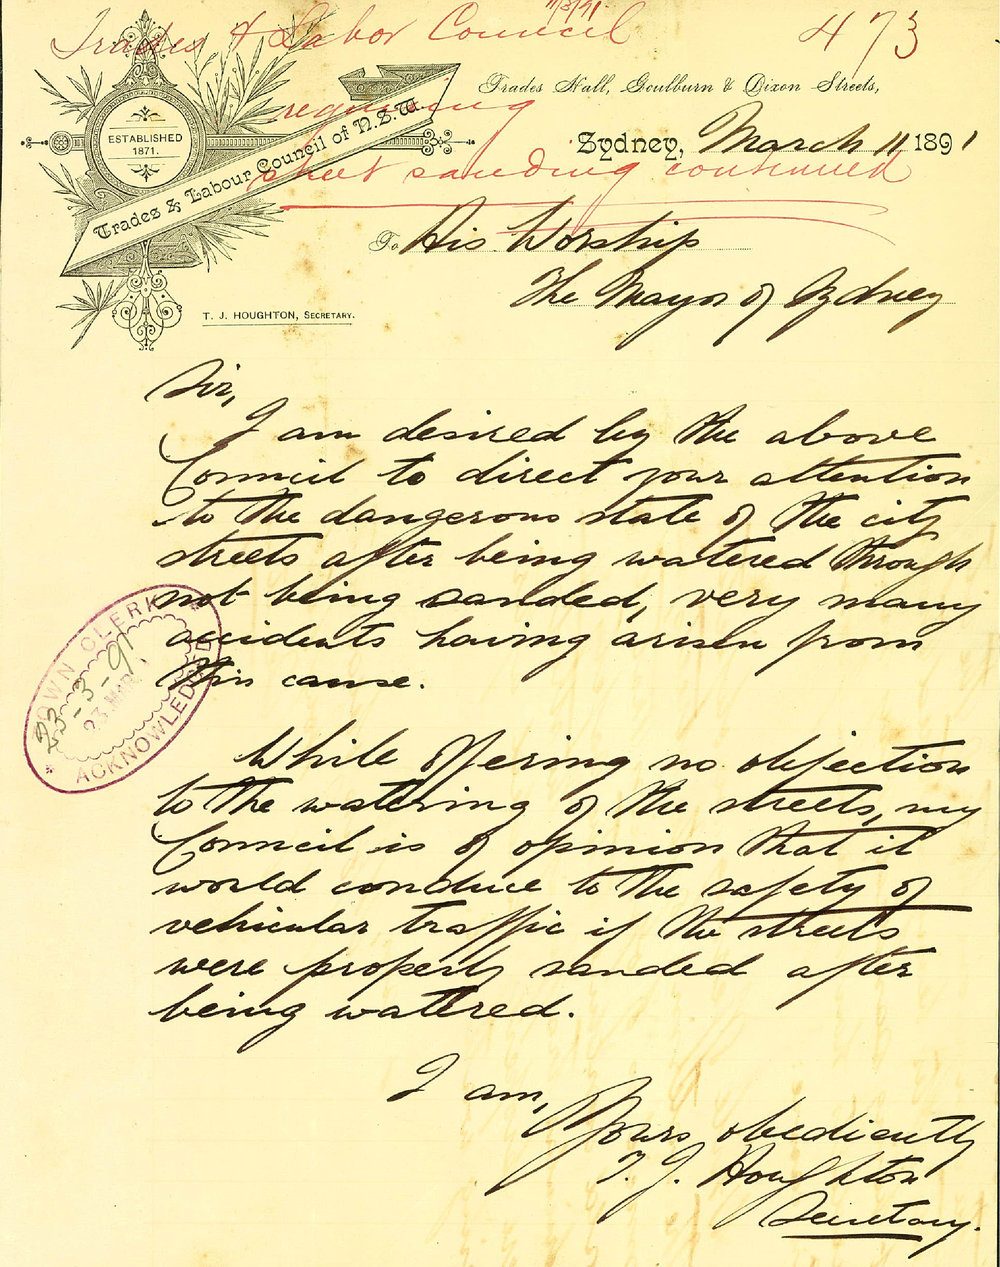 11/3/91
Trades & Labor Council 473
requiring
street sanding continued
ESTABLISHED
1871.
Trades & Labour Council of N.S.W
Trades Hall, Goulburn & Dixon Streets,
Sydney, March 11 1891
To His Worship
The Mayor of Sydney
T. J. HOUGHTON, SECRETARY.
Sir,
I am desired by the above
Council to direct your attention
to the dangerous state of the city
streets after being watered through
not being sanded, very many
accidents having arisen from
this cause.
TOWN CLERK
23-3-91
23 MAR
ACKNOWLEDGED
While offering no objection
to the watering of the streets, my
Council is of opinion that it
would conduce to the safety of
vehicular traffic if the streets
were properly sanded after
being watered.
I am,
Yours obediently
T. J. Houghton
Secretary.